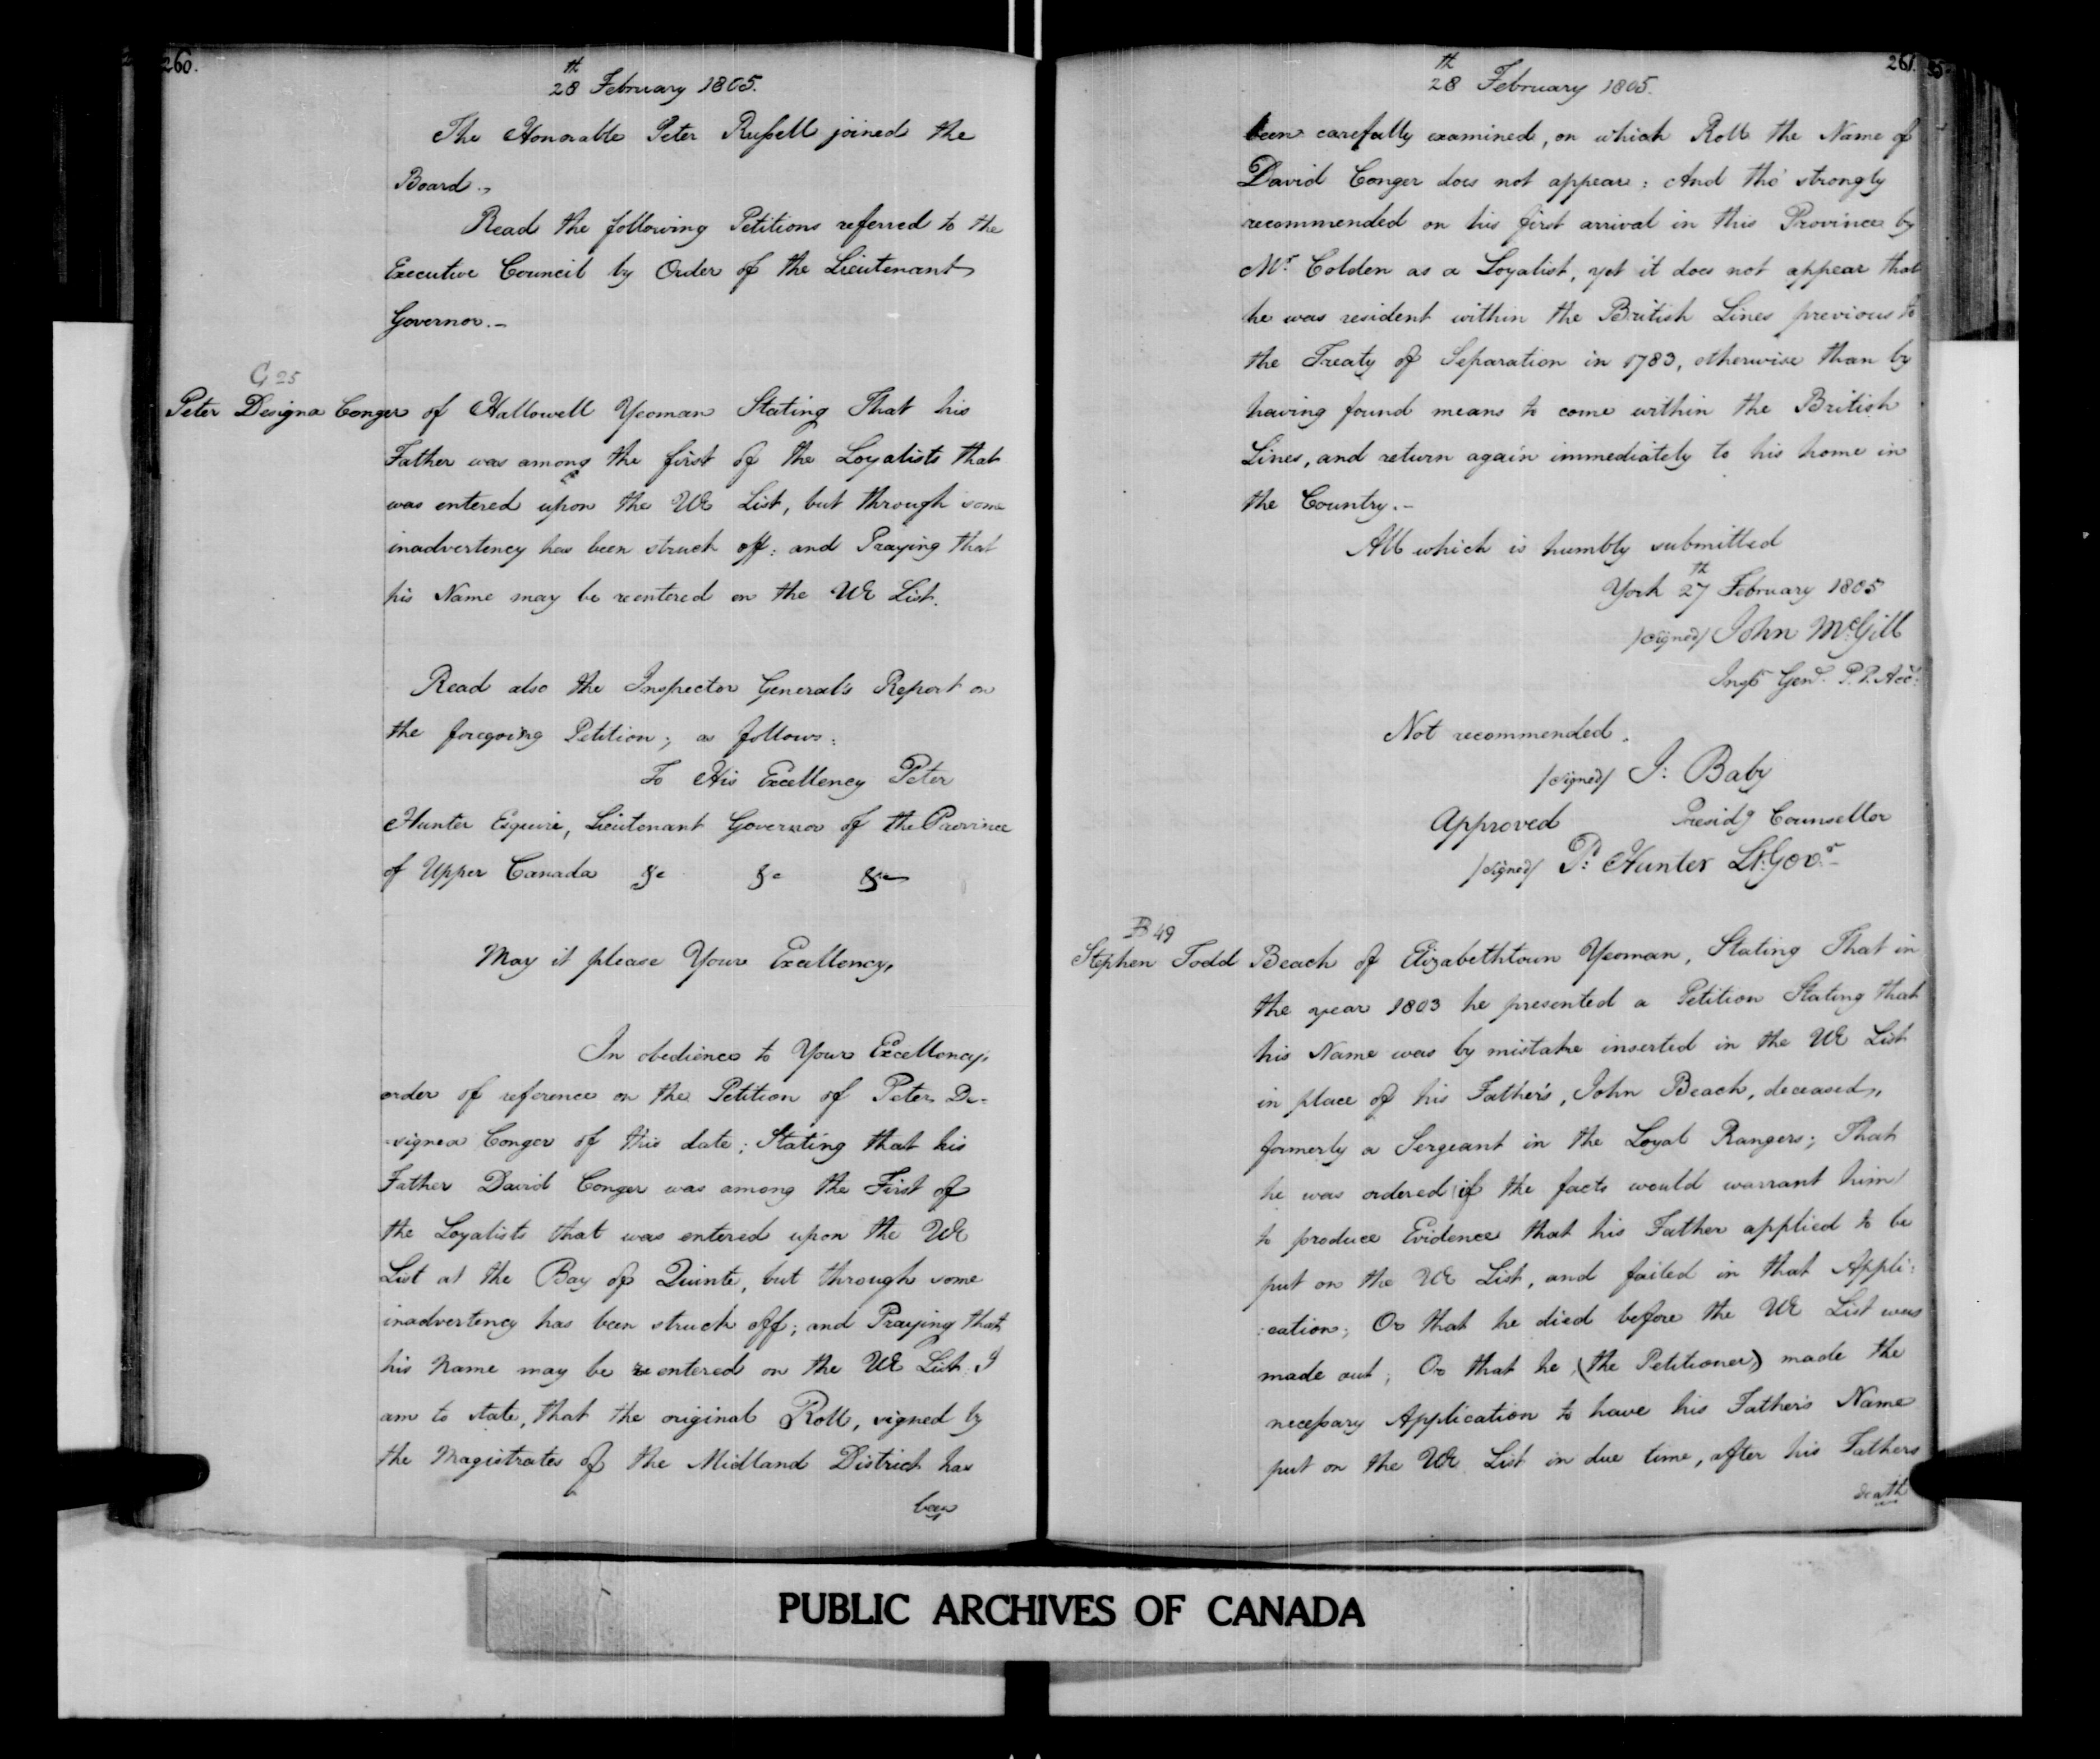 260.
28th February 1805.
The Honorable Peter Russell joined the
Board.,
Read the following Petitions referred to the
Executive Council by Order of the Lieutenant
Governor.-
C 25
Peter Designa Conger of Hallowell Yeoman Stating That his
Father was among the first of the Loyalists that
was entered upon the UE List, but through some
inadvertency has been struck off: and Praying that
his Name may be reentered on the UE List.
Read also the Inspector General's Report on
the foregoing Petition; as follows:
To His Excellency Peter
Hunter Esquire, Lieutenant Governor of the Province
of Upper Canada &c &c &c
May it please Your Excellency,
In obedience to Your Excellency's
order of reference on the Petition of Peter De-
-signea Conger of this date; Stating that his
Father David Conger was among the First of
the Loyalists that was entered upon the UE
List at the Bay of Quinte, but through some
inadvertency has been struck off; and Praying that
his Name may be reentered on the UE List. I
am to state, that the original Roll, signed by
the Magistrates of the Midland District has
been
261. 35.
28th February 1805.
been carefully examined, on which Roll the Name of
David Conger does not appear: And tho' strongly
recommended on his first arrival in this Province by
Mr. Colden as a Loyalist, yet it does not appear that
he was resident within the British Lines previous to
the Treaty of Separation in 1783, otherwise than by
having found means to come within the British
Lines, and return again immediately to his home in
the Country.-
All which is humbly submitted
York 27th February 1805
/signed/ John McGill
Inspr Genl. P. P. Acct.
Not recommended.
/signed/ J: Baby
Presidg Counsellor
Approved
/signed/ P: Hunter Lt. Govr.
B 49
Stephen Todd Beach of Elizabethtown Yeoman, Stating That in
the year 1803 he presented a Petition Stating that
his Name was by mistake inserted in the UE List
in place of his Father's, John Beach, deceased,
formerly a Sergeant in the Loyal Rangers; That
he was ordered if the facts would warrant him
to produce Evidence that his Father applied to be
put on the UE List, and failed in that Appli:
:cation; Or that he died before the UE List was
made out; Or that he (the Petitioner) made the
necessary Application to have his Father's Name
put on the UE List in due time, after his Fathers
death
PUBLIC ARCHIVES OF CANADA